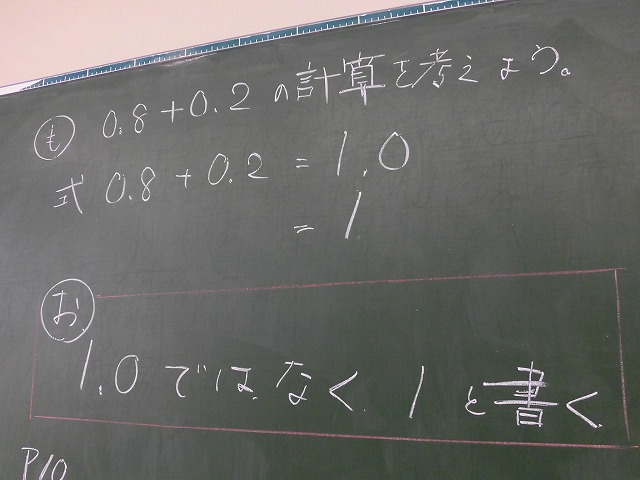 も 0.8+0.2の計算を考えよう。
式 0.8+0.2=1.0
=1
お
1.0ではなく1と書く
P10